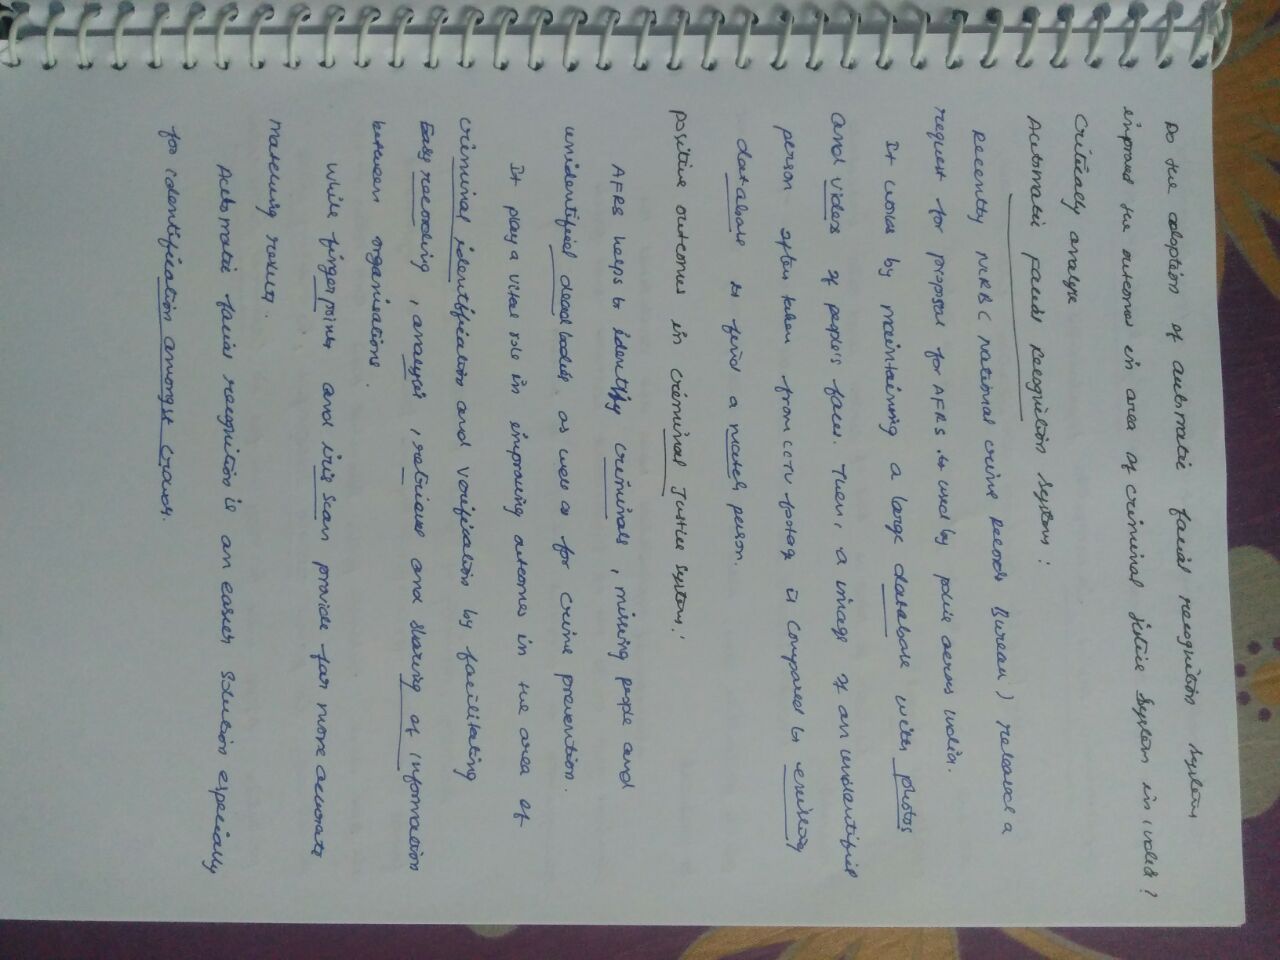 Do the adoption of automatic facial recognition system
improved the outcomes in area of criminal justice system in india?
Critically analyse
Automatic facial Recognition System :
Recently NCRB ( national crime Records Bureau ) released a
request for proposal for AFRS to used by police across india.
It works by maintaining a large database with photos
and videos of people's faces. Then, a image of an unidentified
person often taken from cctv footage is compared to existing
database to find a match person.
Positive outcomes in criminal Justice System :
AFRS helps to identify criminals, missing people and
unidentified dead bodies as well as for crime prevention.
It play a vital role in improving outcomes in the area of
criminal identification and verification by facilitating
Easy recording, analysis, retrieve and sharing of information
between organisations.
While finger prints and iris scan provide far more accurate
matching results.
Automatic facial recognition is an easier solution especially
for identification amongst crowds.